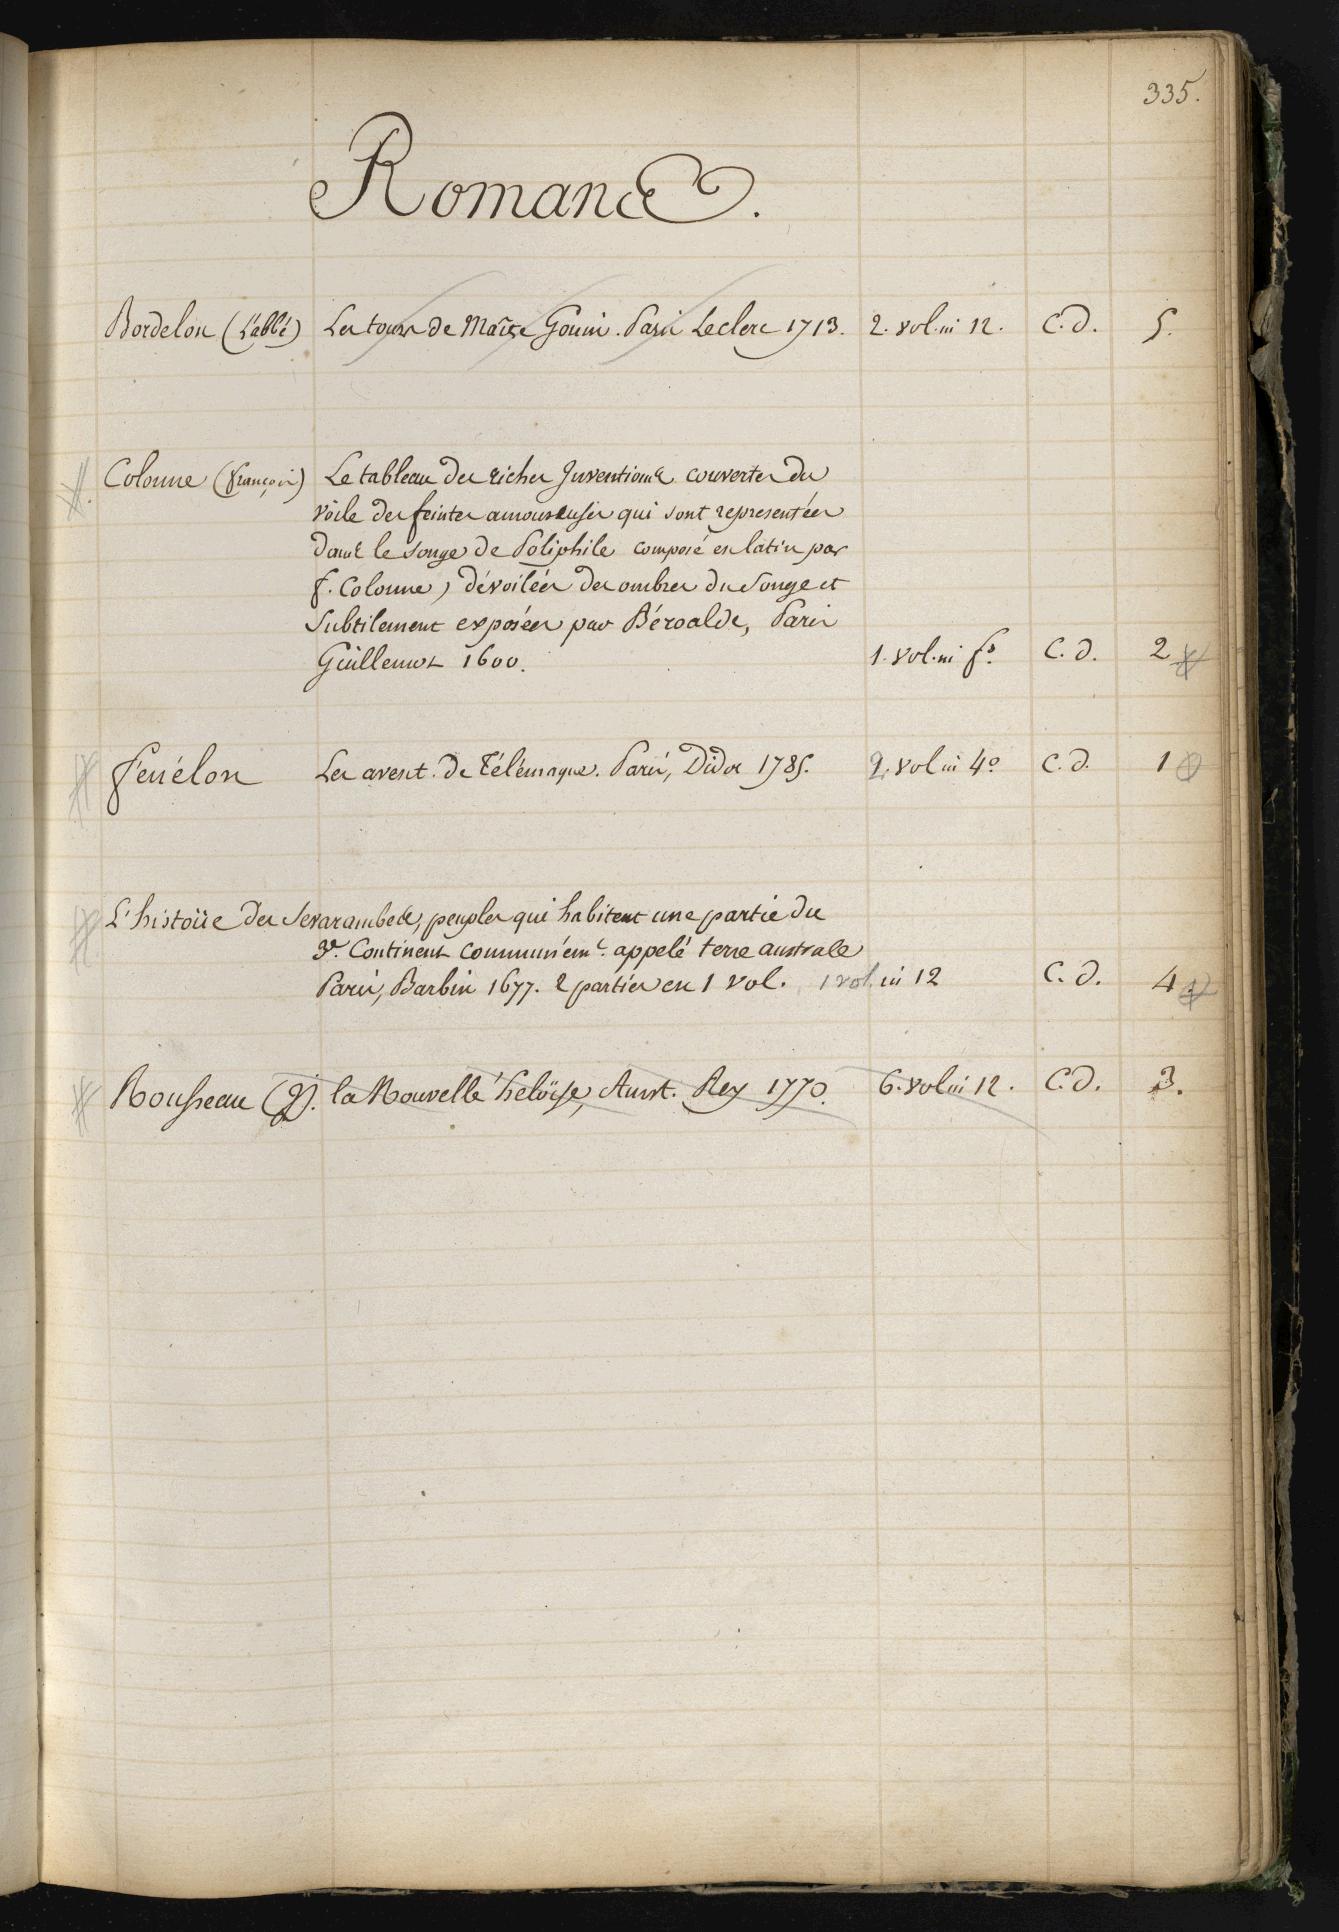 335.
Romans.
Bordelon (L'abbé) Les tours de Maître Gonin. Paris Leclerc 1713. 2. vol. in 12. C. d. 5.
Colonne (françois) Le tableau des riches Inventions couvertes du
voile des feintes amoureuses qui sont representées
dans le songe de Poliphile composé en latin par
f. Colonne, dévoilées des ombres du Songe et
Subtilement exposées par Béroalde, Paris
Guillemot 1600. 1. vol. in fo. C. d. 2
fénélon Les avent. de Télémaque. Paris, Didot 1785. 2. vol in 4o C. d. 1
L'histoire des Sevarambes, peuples qui habitent une partie du
3e. Continent communémt. appelé terre australe
Paris, Barbin 1677. 2 parties en 1 vol. 1 vol. in 12 C. d. 4
Rousseau (J). la Nouvelle héloïse, Amst. Rey 1770. 6. vol in 12. C. d. 3.